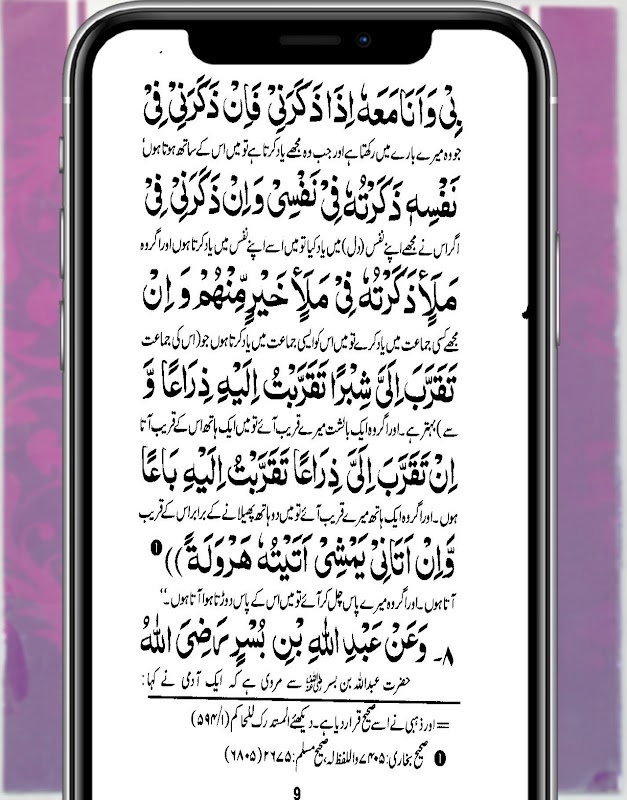 بِیْ وَاَنَا مَعَهٗ اِذَا ذَكَرَنِیْ فَاِنْ ذَكَرَنِیْ فِیْ
جو وہ میرے بارے میں رکھتا ہے اور جب وہ مجھے یاد کرتا ہے تو میں اس کے ساتھ ہوتا ہوں
نَفْسِهٖ ذَكَرْتُهٗ فِیْ نَفْسِیْ وَاِنْ ذَكَرَنِیْ فِیْ
اگر اس نے مجھے اپنے نفس (دل) میں یاد کیا تو میں اسے اپنے نفس میں یاد کرتا ہوں اور اگر وہ
مَلَاٍ ذَكَرْتُهٗ فِیْ مَلَاٍ خَيْرٍ مِّنْهُمْ وَ اِنْ
مجھے کسی جماعت میں یاد کرے تو میں اس کو ایسی جماعت میں یاد کرتا ہوں جو (اس کی جماعت
تَقَرَّبَ اِلَیَّ شِبْرًا تَقَرَّبْتُ اِلَيْهِ ذِرَاعًا وَّ
سے) بہتر ہے۔ اور اگر وہ ایک بالشت میرے قریب آئے تو میں ایک ہاتھ اس کے قریب آتا
اِنْ تَقَرَّبَ اِلَیَّ ذِرَاعًا تَقَرَّبْتُ اِلَيْهِ بَاعًا
ہوں۔ اور اگر وہ ایک ہاتھ میرے قریب آئے تو میں دو ہاتھ پھیلانے کے برابر اس کے قریب
وَّاِنْ اَتَانِیْ يَمْشِیْ اَتَيْتُهٗ هَرْوَلَةً)) ❶
آتا ہوں۔ اور اگر وہ میرے پاس چل کر آئے تو میں اس کے پاس دوڑتا ہوا آتا ہوں۔‘‘
۸۔ وَعَنْ عَبْدِ اللهِ بْنِ بُسْرٍ رَضِیَ اللهُ
حضرت عبداللہ بن بسر رضی اللہ عنہ سے مروی ہے کہ ایک آدمی نے کہا:
== اور ذہبی نے اسے صحیح قرار دیا ہے۔ دیکھئے المستدرک للحاکم (۵۹۴/۱)
❶ صحیح بخاری: ۷۴۰۵ واللفظ لہ، صحیح مسلم: ۲۶۷۵ (۶۸۰۵)
9